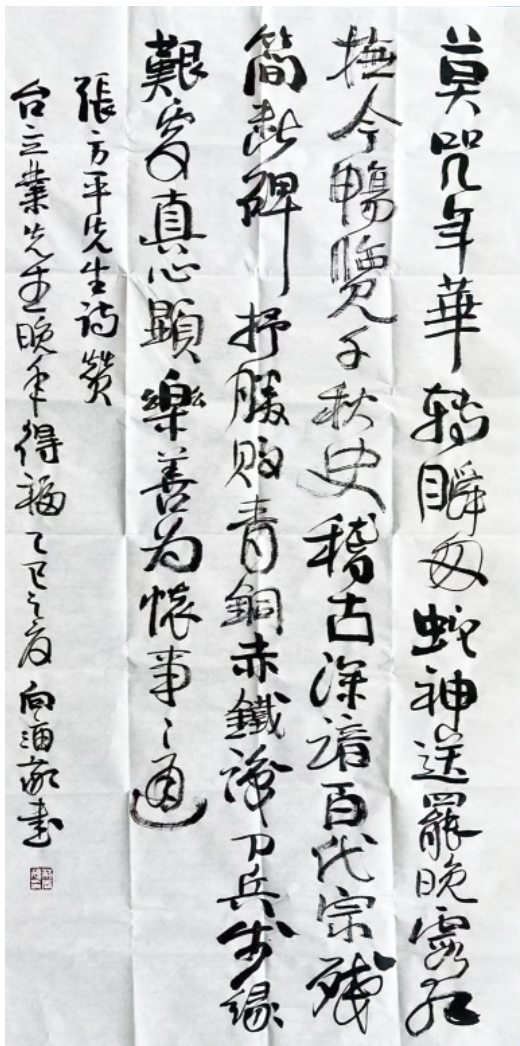 莫咒年華轉瞬匆蛇神送罷晚霞紅
撫今暢覽千秋史稽古深諳百代宗殘
簡斷碑抒勝敗青銅赤鐵證刀兵步緣
艱處真心顯樂善為懷事〻通
張方平先生詩贊
台立業先生晚年得福乙巳之夏向酒家書